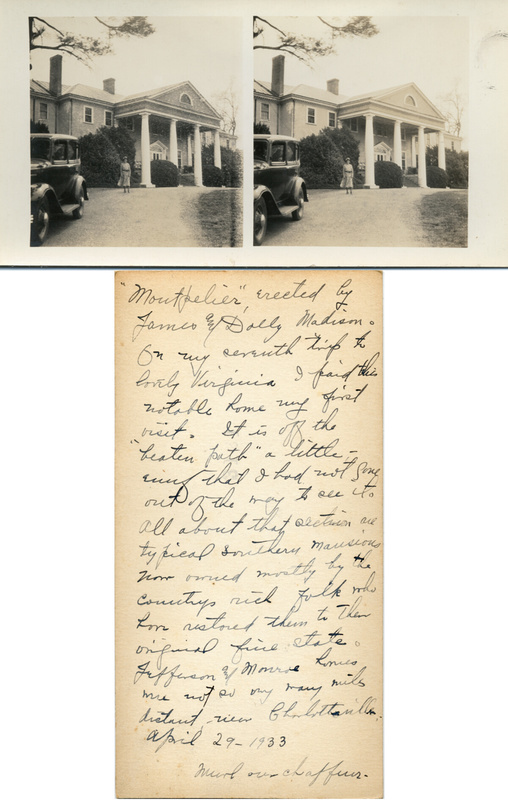 "Montpelier", erected by
James & Dolly Madison.
On my seventh trip to
lovely Virginia I paid this
notable home my first
visit. It is off the
"beaten path" a little -
that I had not gone
out of the way to see it.
All about that section are
typical Southern mansions
now owned mostly by the
countrys rich folk who
have restored them to their
original fine state.
Jefferson & Monroe homes
were not so many miles
distant, near Charlottsville.
April 29 - 1933
our chaffeur.